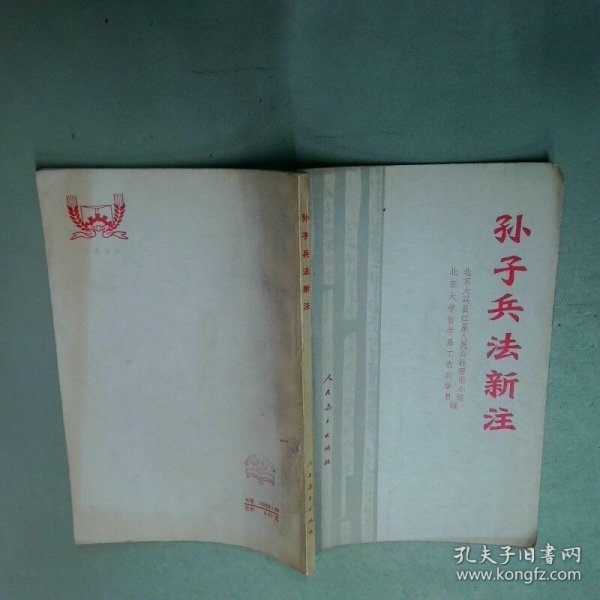 孙子兵法新注
北京大兴县红星人民公社理论小组
北京大学哲学系工农兵学员
编
人民教育出版社
孙子兵法新注
人民教育出版社
书号
定价
孔夫子旧书网
www.kongfz.com